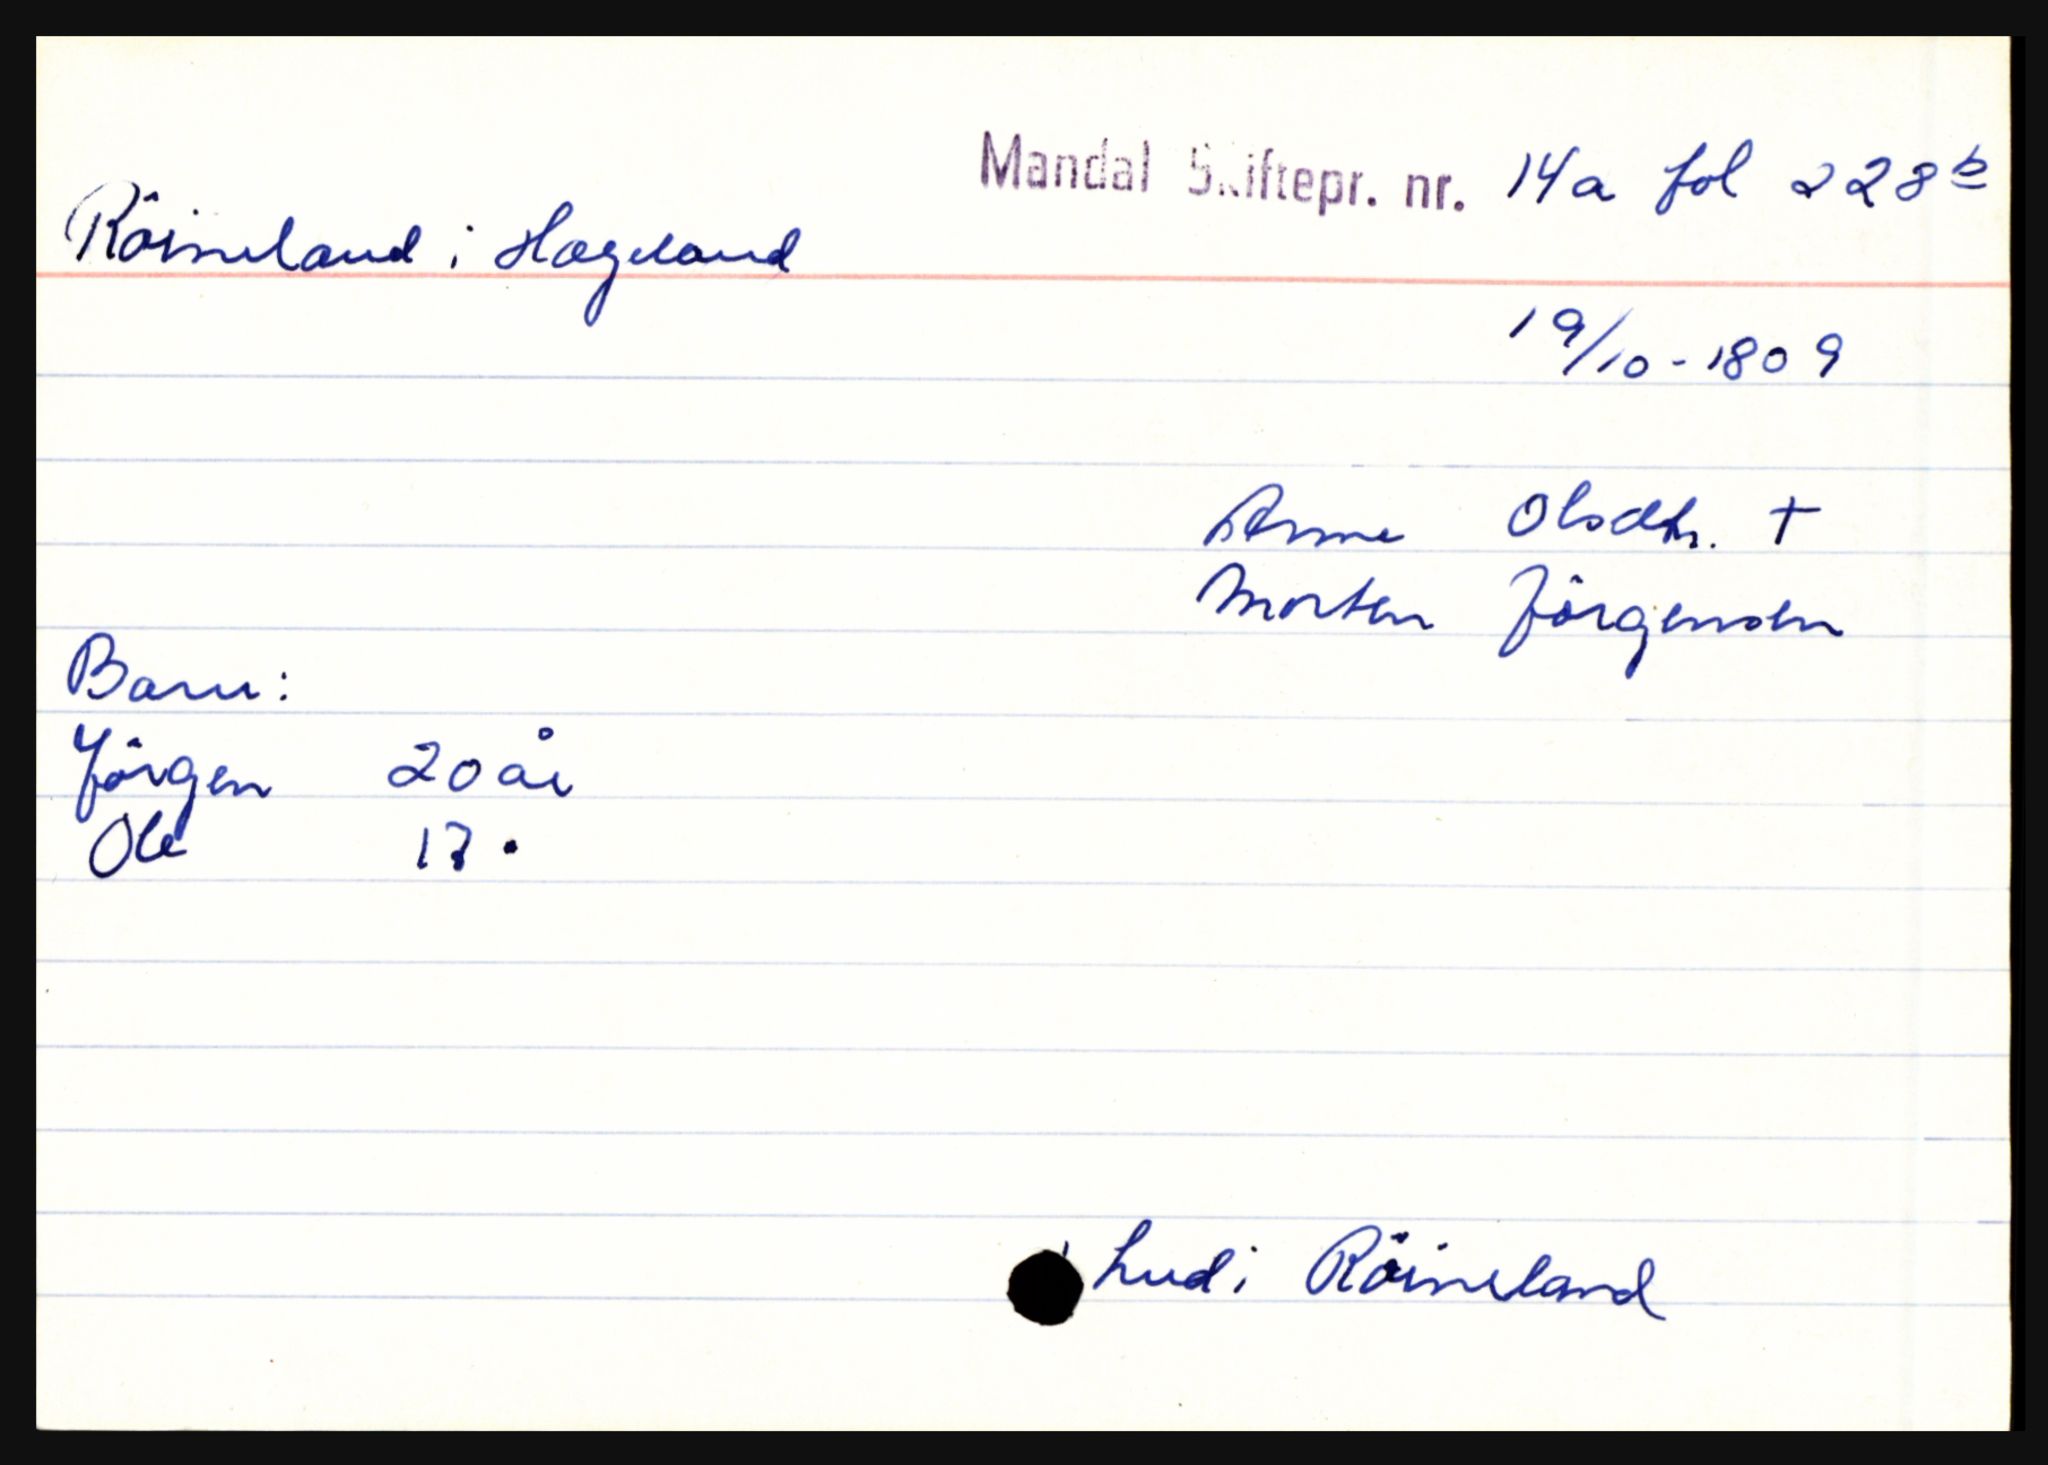 Mandal Skiftepr. nr. 14a fol 228 b
Röineland i Hægeland
19/10 - 1809
Anne Olsdtr. †
Morten Jörgensen
Barn:
Jörgen 20 år
Ole 17 "
Röineland